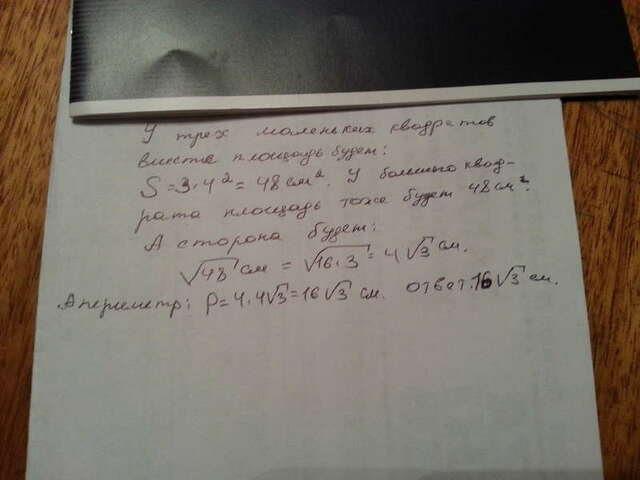 У трех маленьких квадратов
вместе площадь будет:
S = 3·4² = 48 см². У большого квад-
рата площадь тоже будет 48 см².
А сторона будет:
√48 см = √16·3 = 4√3 см.
А периметр: P = 4·4√3 = 16√3 см. ответ: 16√3 см.